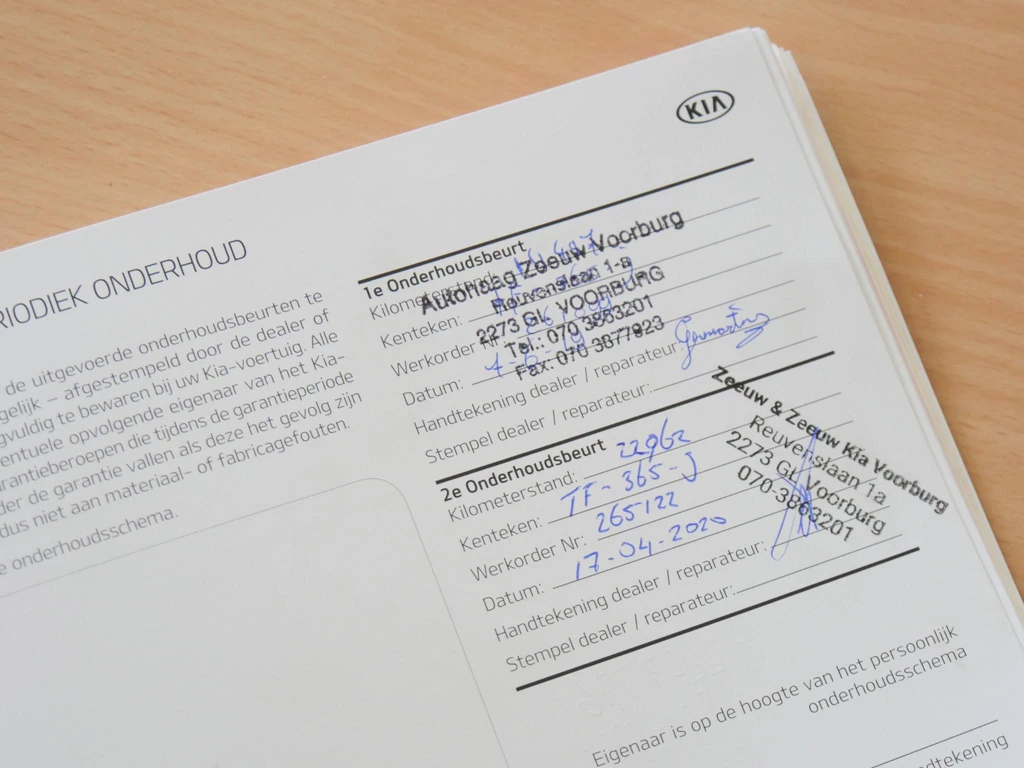 KIA
RIODIEK ONDERHOUD
de uitgevoerde onderhoudsbeurten te
gelijk – afgestempeld door de dealer of
gvuldig te bewaren bij uw Kia-voertuig. Alle
entuele opvolgende eigenaar van het Kia-
rantieberoepen die tijdens de garantieperiode
der de garantie vallen als deze het gevolg zijn
dus niet aan materiaal- of fabricagefouten.
e onderhoudsschema.
1e Onderhoudsbeurt
Kenteken:
Werkorder
Datum:
Handtekening dealer / reparateur:
Stempel dealer / reparateur:
Zeeuw Voorburg
Reuvenslaan 1-a
2273 GL VOORBURG
Tel.: 070 3863201
Fax: 070 3877823
2e Onderhoudsbeurt
Kilometerstand: 22962
Kenteken: TF-365-J
Werkorder Nr: 265122
Datum: 17-04-2020
Handtekening dealer / reparateur:
Stempel dealer / reparateur:
Zeeuw & Zeeuw Kia Voorburg
Reuvenslaan 1a
2273 GL Voorburg
070-3863201
Eigenaar is op de hoogte van het persoonlijk
onderhoudsschema
dtekening